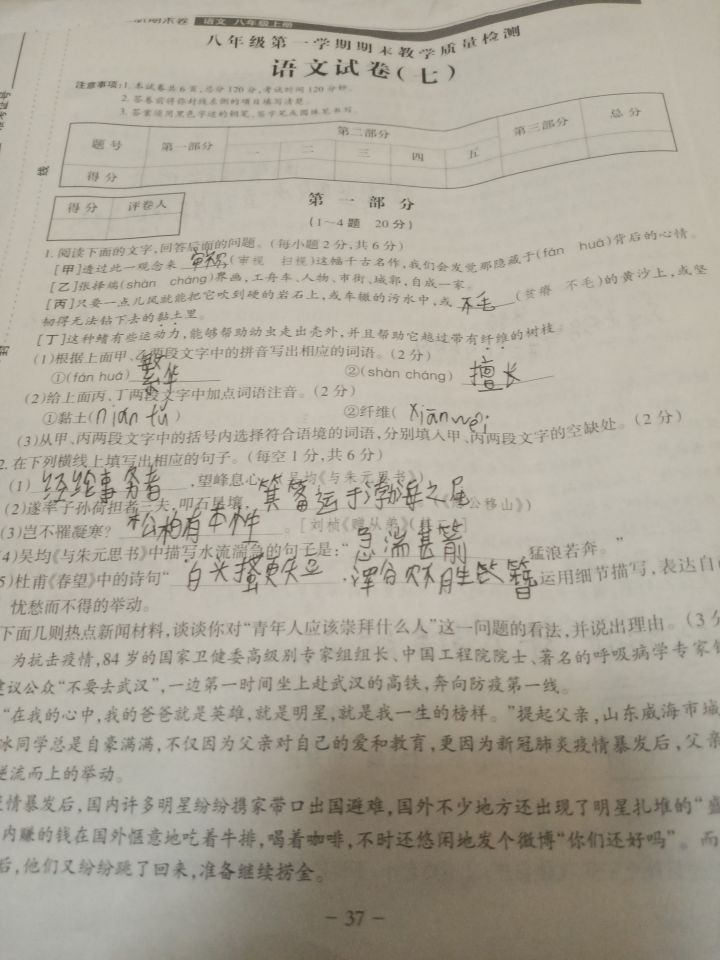 期末卷 语文 八年级上册
八年级第一学期期末教学质量检测
语文试卷(七)
注意事项:1.本试卷共6页,总分120分,考试时间120分钟。
2.答卷前将弥封线左侧的项目填写清楚。
3.答案须用黑色字迹的钢笔、签字笔或圆珠笔书写。
题号 第一部分 第二部分 第三部分 总分
一 二 三 四 五
得分
得分 评卷人
第一部分
(1~4题 20分)
1.阅读下面的文字,回答后面的问题。(每小题2分,共6分)
[甲]透过此一观念来 审视 (审视 扫视)这幅千古名作,我们会发觉那隐藏于(fán huá)背后的心情。
[乙]张择端(shàn cháng)界画,工舟车、人物、市街、城郭,自成一家。
[丙]只要一点儿风就能把它吹到硬的岩石上,或车辙的污水中,或 不毛 (贫瘠 不毛)的黄沙上,或坚
韧得无法钻下去的黏土里。
[丁]这种蜡有些运动力,能够帮助幼虫走出壳外,并且帮助它越过带有纤维的树枝。
(1)根据上面甲、乙两段文字中的拼音写出相应的词语。(2分)
①(fán huá) 繁华 ②(shàn cháng) 擅长
(2)给上面丙、丁两段文字中加点词语注音。(2分)
①黏土(nián tǔ) ②纤维(xiānwéi)
(3)从甲、丙两段文字中的括号内选择符合语境的词语,分别填入甲、丙两段文字的空缺处。(2分)
2.在下列横线上填写出相应的句子。(每空1分,共6分)
(1) 经纶事务者 ,望峰息心。[吴均《与朱元思书》]
(2)遂率子孙荷担者三夫,叩石垦壤, 箕畚运于渤海之尾 。(《愚公移山》)
(3)岂不罹凝寒? 松柏有本性 。[刘桢《赠从弟》(其二)]
(4)吴均《与朱元思书》中描写水流湍急的句子是:“ 急湍甚箭 , 猛浪若奔。”
5)杜甫《春望》中的诗句“ 白头搔更短 , 浑欲不胜簪 运用细节描写,表达自己
忧愁而不得的举动。
下面几则热点新闻材料,谈谈你对“青年人应该崇拜什么人”这一问题的看法,并说出理由。(3分
为抗击疫情,84岁的国家卫健委高级别专家组组长、中国工程院院士、著名的呼吸病学专家钟
建议公众“不要去武汉”,一边第一时间坐上赴武汉的高铁,奔向防疫第一线。
“在我的心中,我的爸爸就是英雄,就是明星,就是我一生的榜样。”提起父亲,山东威海市城
冰同学总是自豪满满,不仅因为父亲对自己的爱和教育,更因为新冠肺炎疫情暴发后,父亲
逆流而上的举动。
疫情暴发后,国内许多明星纷纷携家带口出国避难,国外不少地方还出现了明星扎堆的“盛
内赚的钱在国外惬意地吃着牛排,喝着咖啡,不时还悠闲地发个微博“你们还好吗”。而
后,他们又纷纷跳了回来,准备继续捞金。
- 37 -